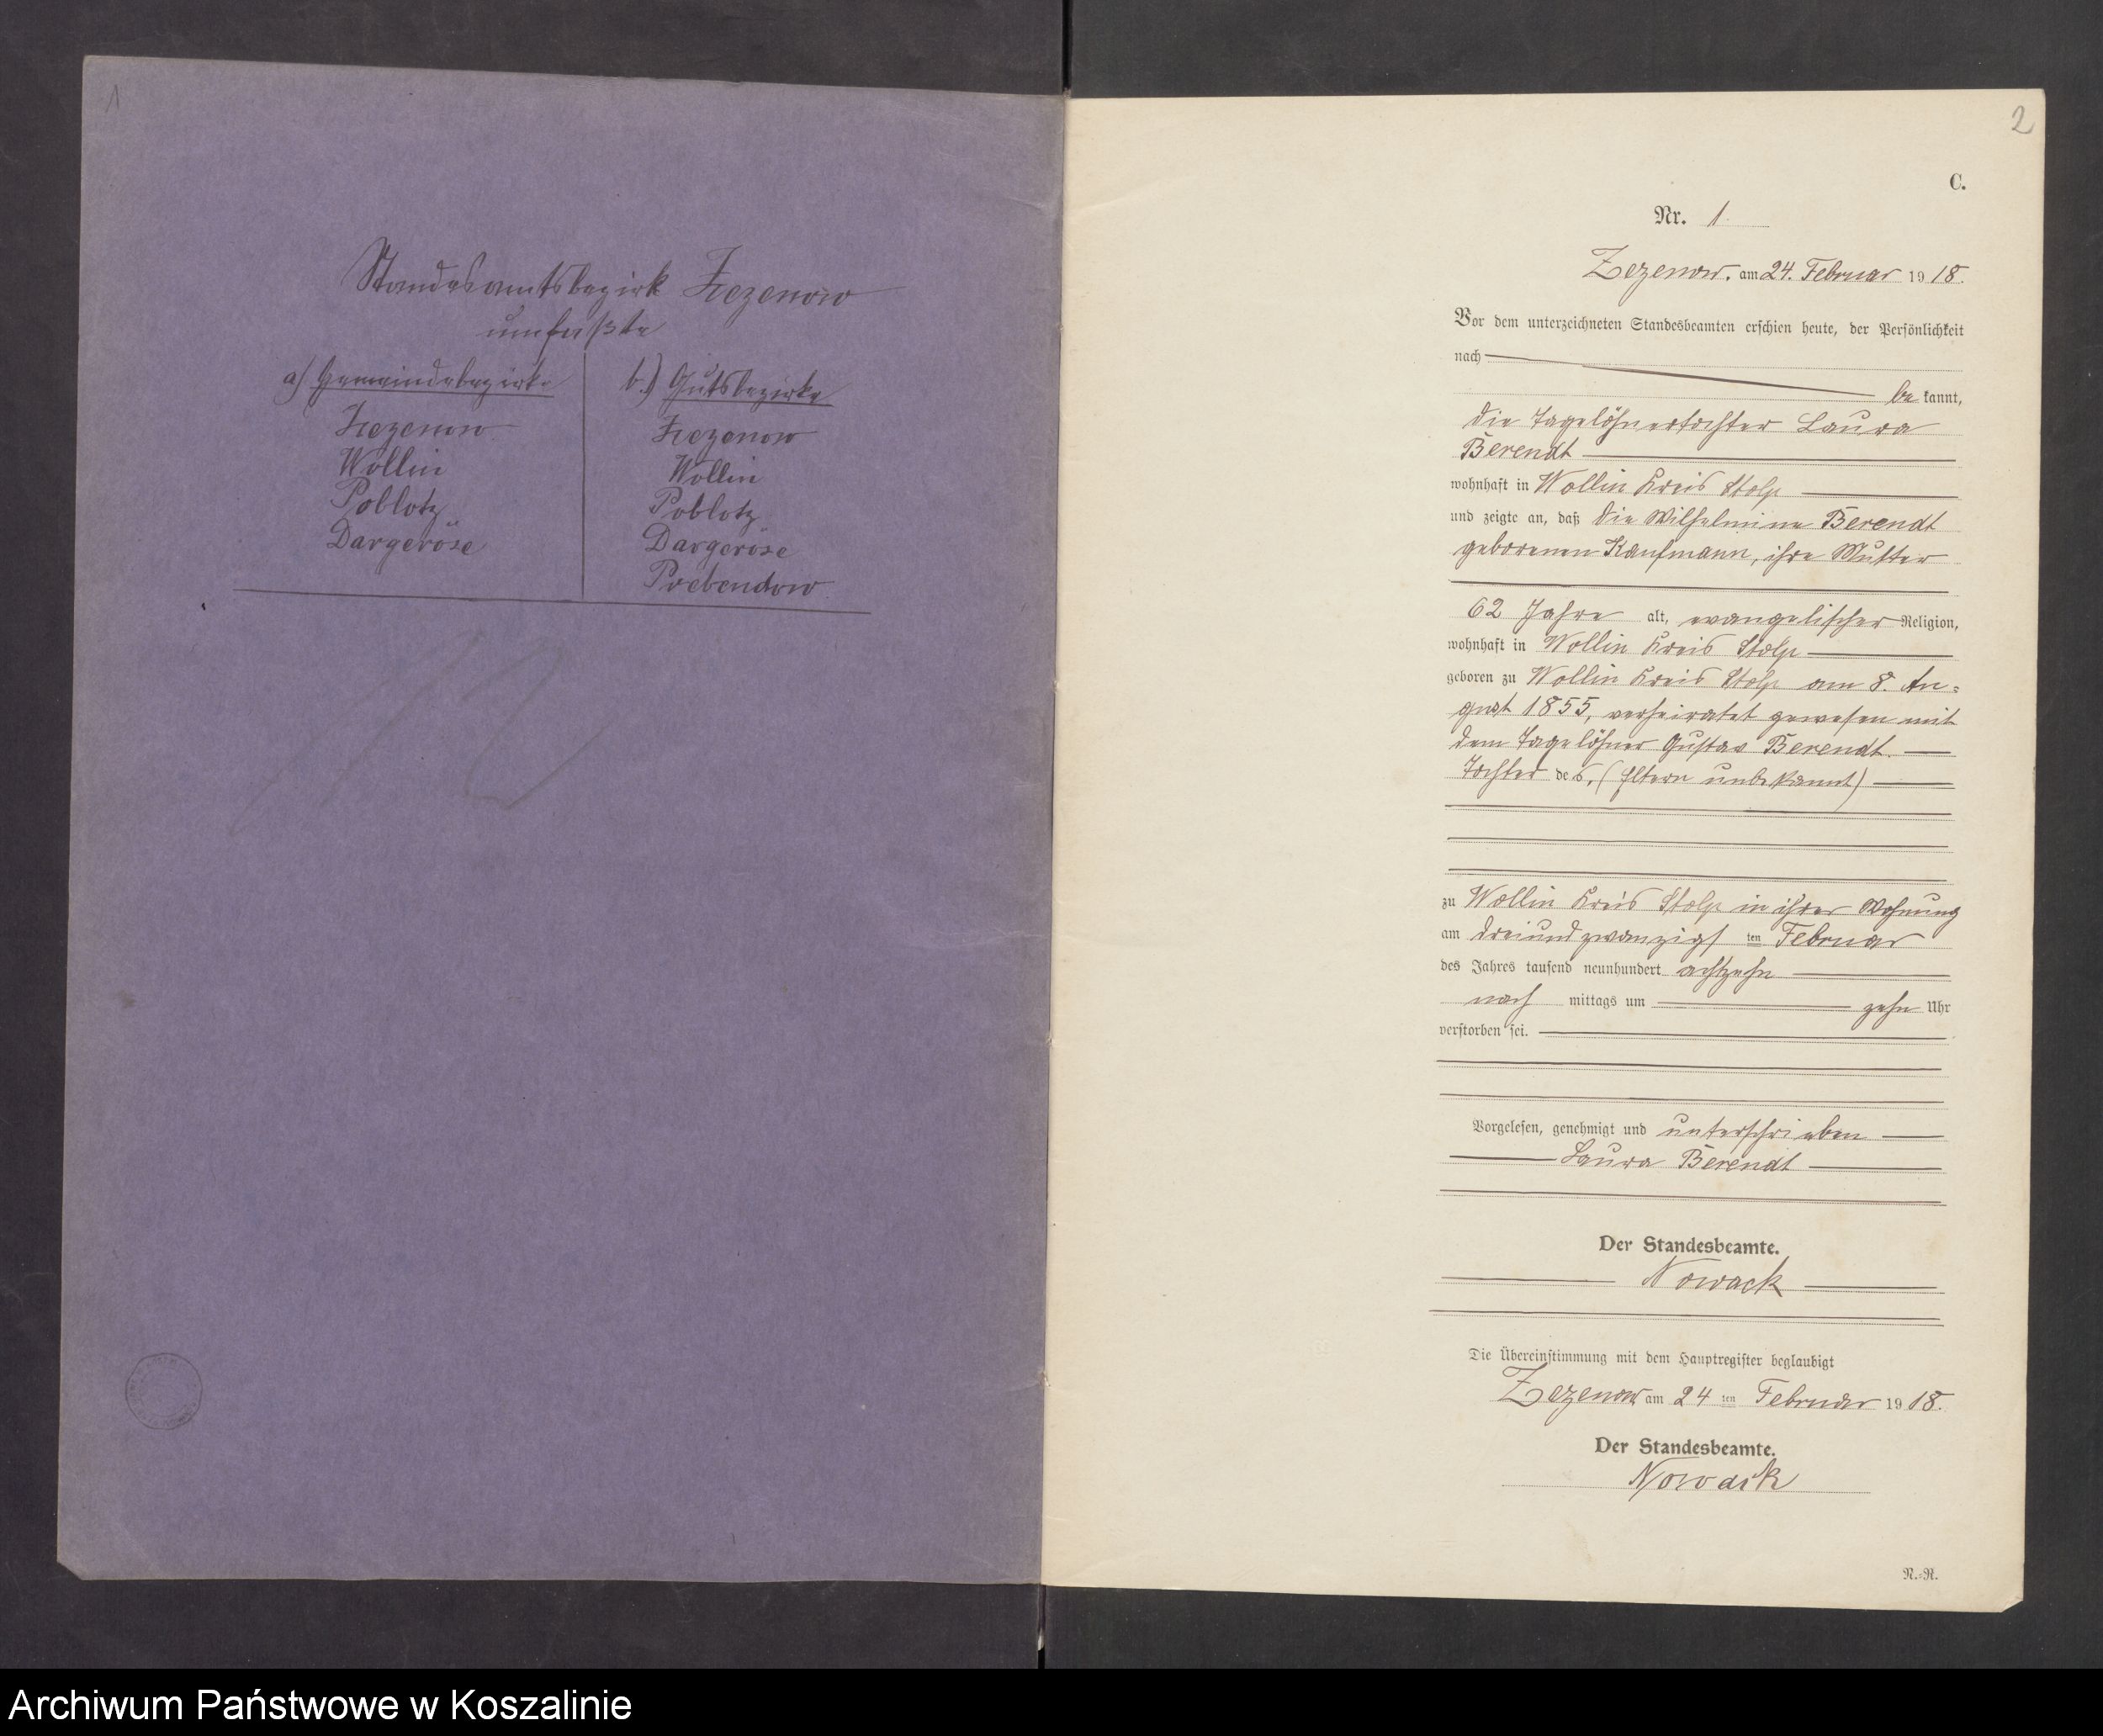 1
Standesamtsbezirk Zezenow
umfaßte
a) Gemeindebezirke
Zezenow
Wollin
Poblotz
Dargeröse
b.) Gutsbezirke
Zezenow
Wollin
Poblotz
Dargeröse
Prebendow.
2
C.
Nr. 1.
Zezenow. am 24. Februar 1918.
Vor dem unterzeichneten Standesbeamten erschien heute, der Persönlichkeit
nach
be kannt,
die Tagelöhnertochter Laura
Berendt
wohnhaft in Wollin Kreis Stolp
und zeigte an, daß die Wilhelmine Berendt
geborenen Kaufmann, ihre Mutter
62 Jahre alt, evangelischer Religion,
wohnhaft in Wollin Kreis Stolp
geboren zu Wollin Kreis Stolp am 8. Au=
gust 1855, verheiratet gewesen mit
dem Tagelöhner Gustav Berendt.
Tochter des, (Eltern unbekannt)
zu Wollin Kreis Stolp in ihrer Wohnung
am dreiundzwanzigs ten Februar
des Jahres tausend neunhundert achtzehn
nach mittags um zehn Uhr
verstorben sei.
Vorgelesen, genehmigt und unterschrieben
Laura Berendt
Der Standesbeamte.
Nowack
Die Übereinstimmung mit dem Hauptregister beglaubigt
Zezenow am 24 ten Februar 1918.
Der Standesbeamte.
Nowack
N.=R.
Archiwum Państwowe w Koszalinie